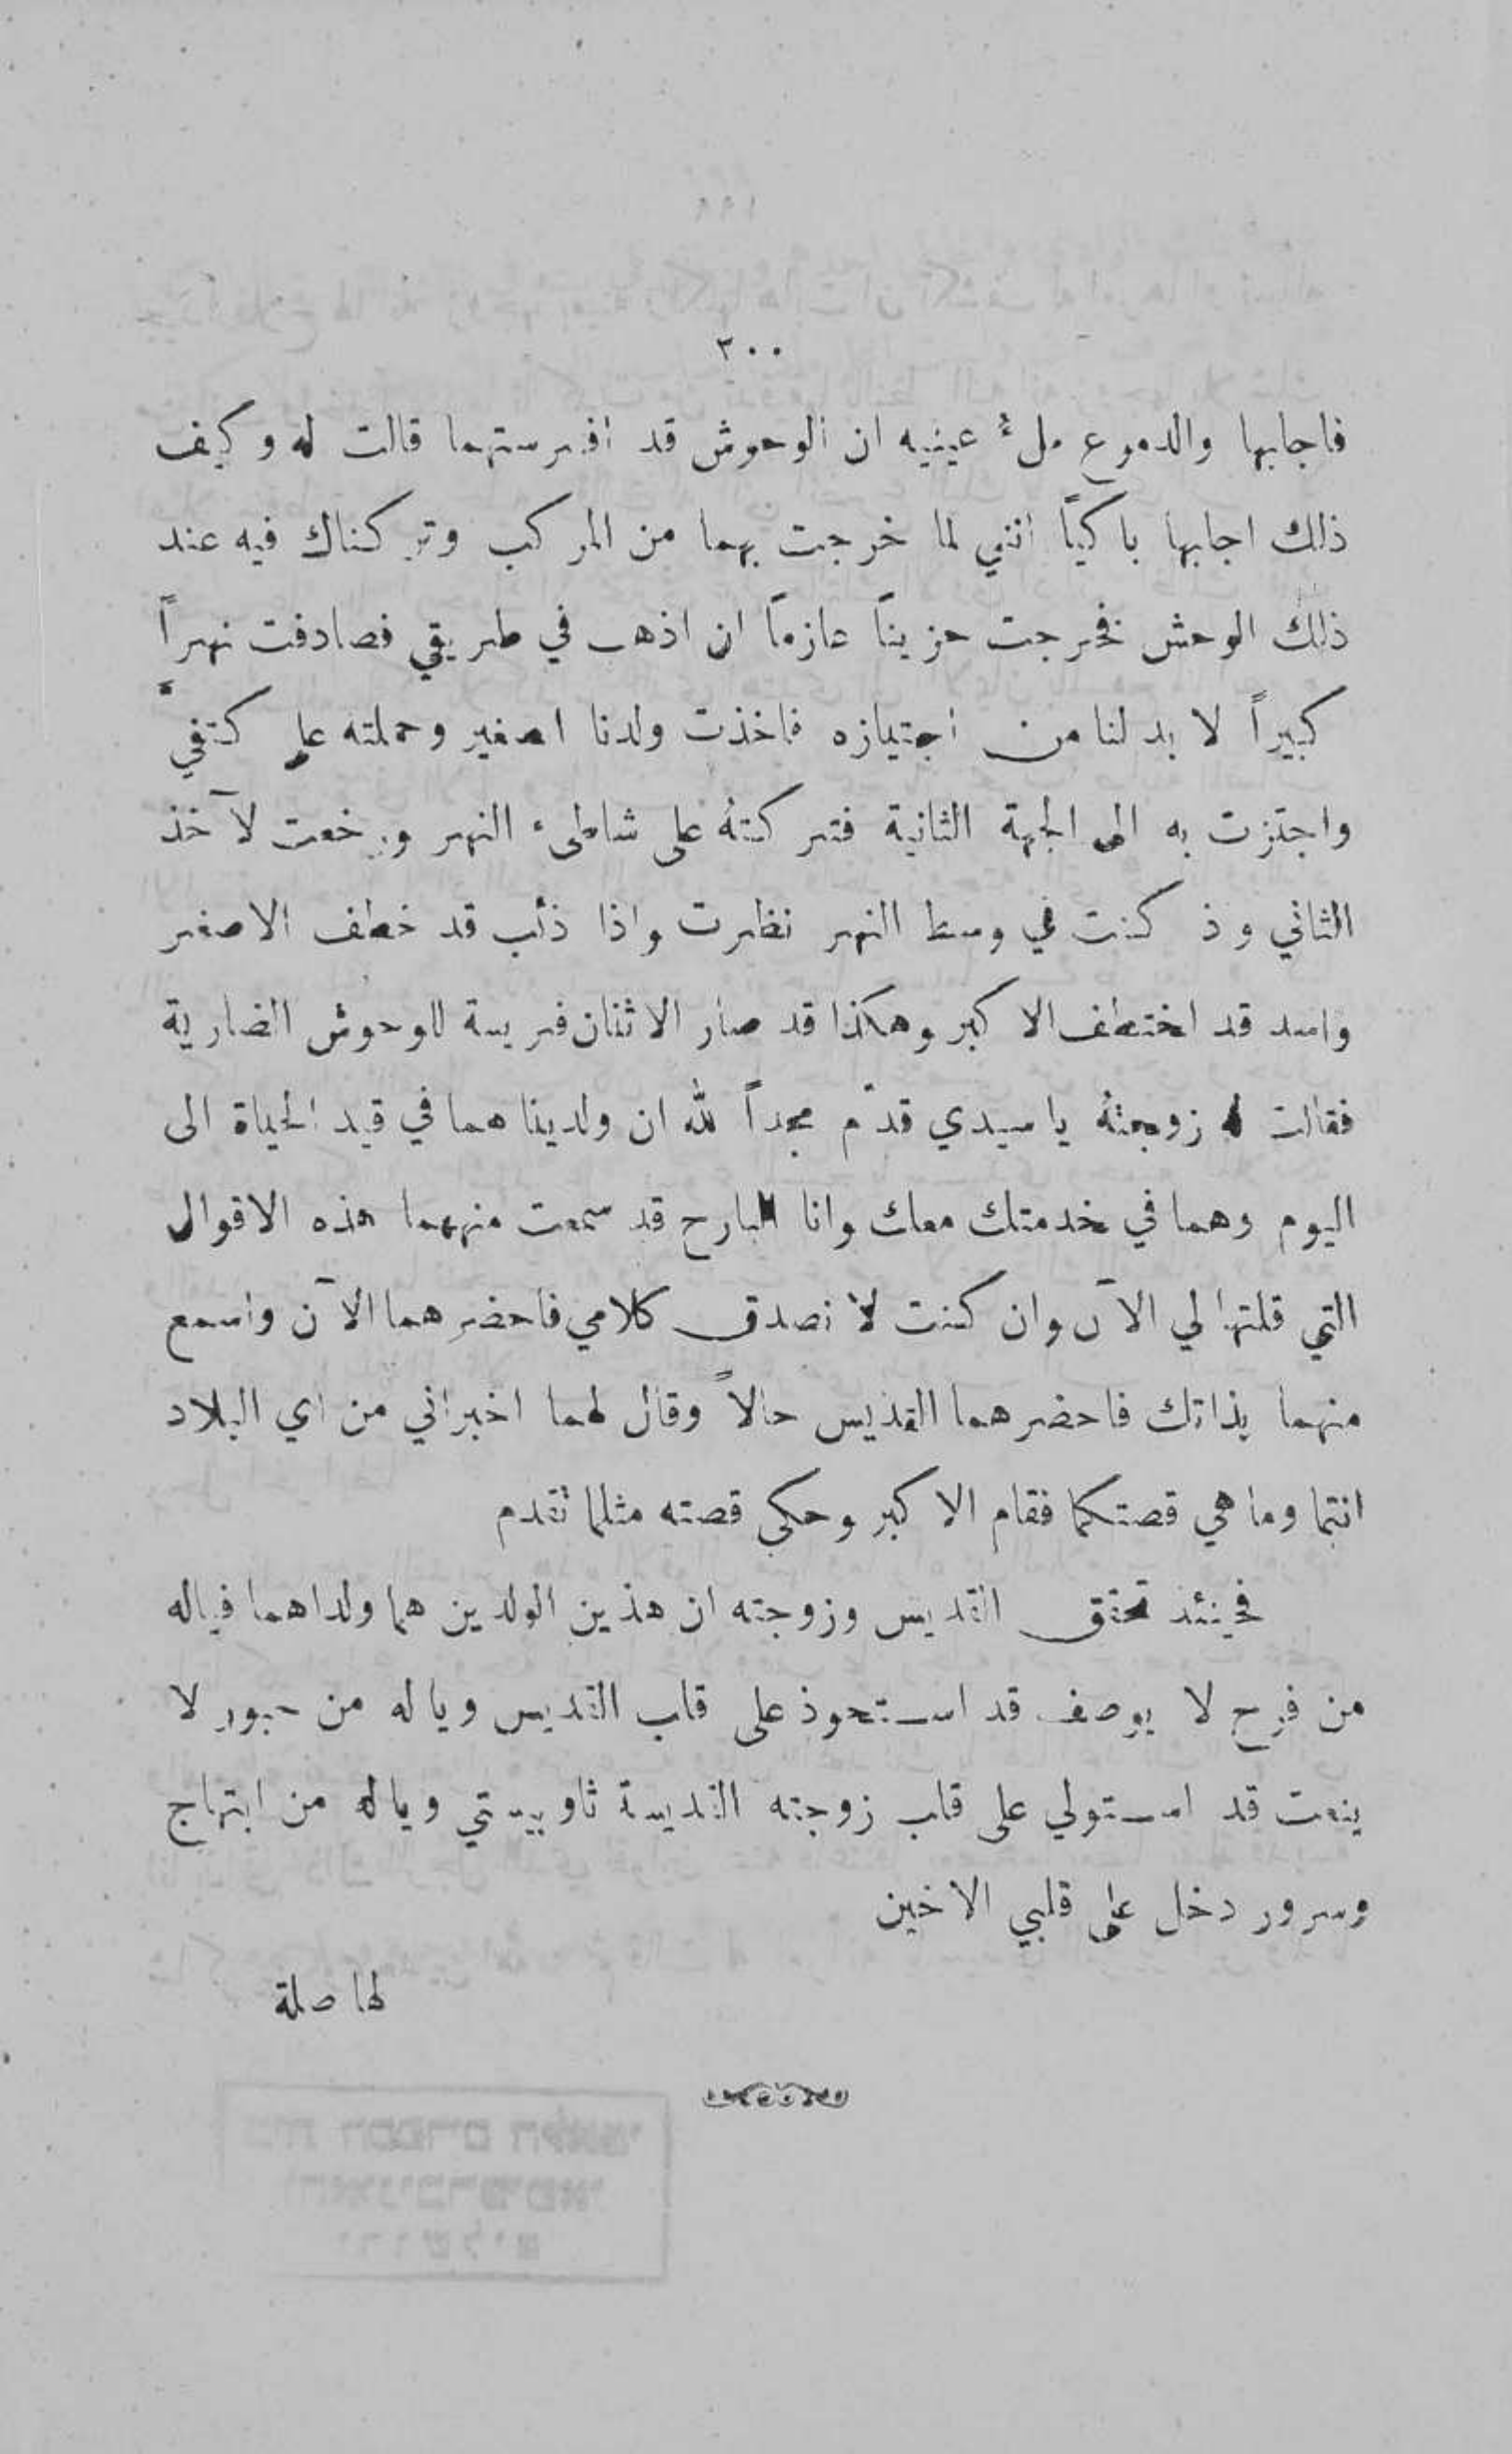 ٢٠٠
فاجابها والدموع ملءُ عينيه ان الوحوش قد افترستهما قالت له وكيف
ذلك اجابها باكيًا انني لما خرجت بهما من المركب وتركناك فيه عند
ذلك الوحش فخرجت حزينًا عازمًا ان اذهب في طريقي فصادفت نهراً
كبيراً لا بد لنا من اجتيازه فاخذت ولدنا الصغير وحملته على كتفي
واجتزت به الى الجهة الثانية فتركتهُ على شاطىء النهر ورجعت لآخذ
الثاني وذ كنت في وسط النهر نظرت واذا ذئب قد خطف الاصغر
واسد قد اختطف الاكبر وهكذا قد صار الاثنان فريسة للوحوش الضارية
فقالت له زوجتهُ يا سيدي قدّم مجداً لله ان ولدينا هما في قيد الحياة الى
اليوم وهما في خدمتك معك وانا البارح قد سمعت منهما هذه الاقوال
التي قلتها لي الآن وان كنت لا تصدق كلامي فاحضرهما الآن واسمع
منهما بذاتك فاحضرهما القديس حالاً وقال لهما اخبراني من اي البلاد
انتما وما هي قصتكما فقام الاكبر وحكى قصته مثلما تقدم
فحينئذ تحقق القديس وزوجته ان هذين الولدين هما ولداهما فياله
من فرح لا يوصف قد استحوذ على قلب القديس وياله من حبور لا
ينعت قد استولي على قلب زوجته القديسة ثاوبيستي وياله من ابتهاج
وسرور دخل على قلبي الاخين
لها صلة